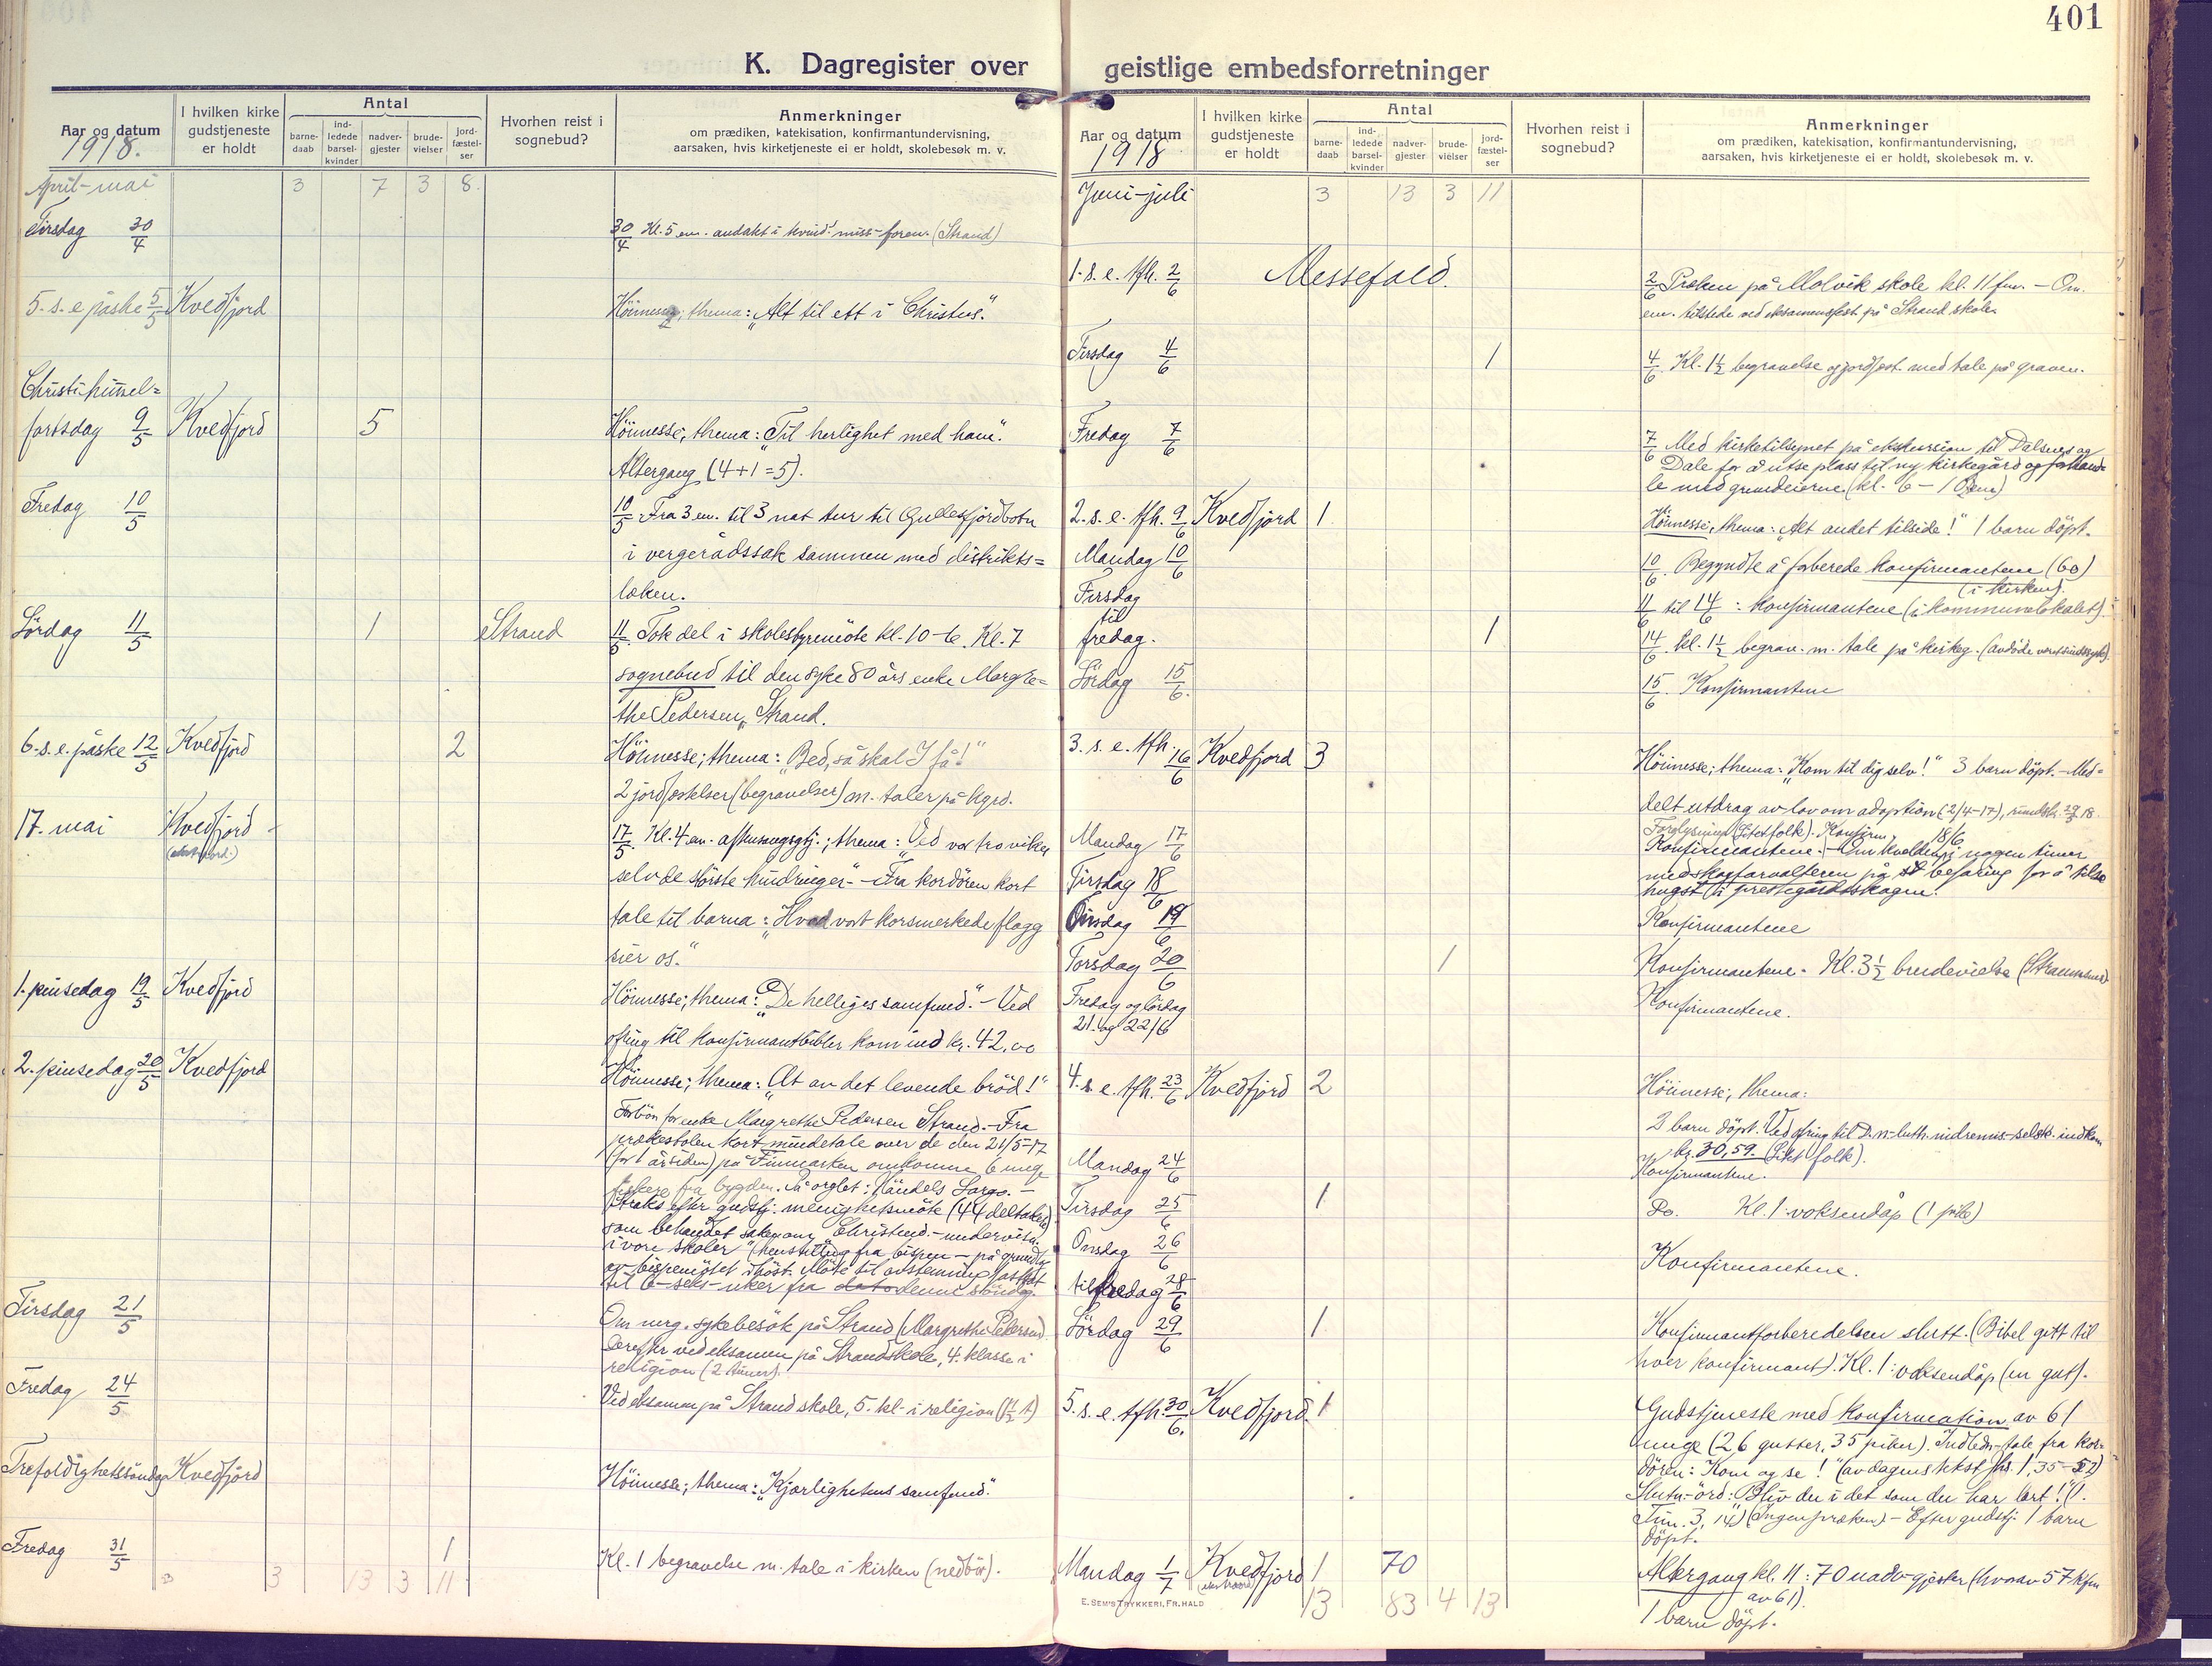 401
K. Dagregister over geistlige embedsforretninger
Aar og datum
1918.
I hvilken kirke gudstjeneste er holdt
Antal
barne-daab
ind-ledede barsel-kvinder
nadver-gjester
brude-vielser
jord-fæstel-ser
Hvorhen reist i sognebud?
Anmerkninger
om prædiken, katekisation, konfirmantundervisning,
aarsaken, hvis kirketjeneste ei er holdt, skolebesøk m. v.
April-mai 3 7 3 8.
Tirsdag 30/4
30/4 Kl. 5 em. andakt i kvind. miss-foren. (Strand)
5. s. e påske 5/5 Kvedfjord
Höimesse; thema: „Alt til ett i Christus."
Christi himmel=
fartsdag 9/5 Kvedfjord 5
Höimesse; thema: „Til herlighet med ham".
Altergang (4+1=5).
Fredag 10/5
10/5 Fra 3 em. til 3 nat tur til Gullesfjordbotn
i vergerådssak sammen med distrikts=
læken.
Lördag 11/5 1 Strand
11/5 Tok del i skolestyremöte kl. 10-6. Kl. 7
sognebud til den syke 80 års enke Margre=
the Pedersen, Strand.
6. s. e. påske 12/5 Kvedfjord 2
Höimesse; thema: „Bed, så skal I få!"
2 jordfæstelser (begravelser) m. taler på kgrd.
17. mai Kvedfjord
17/5. Kl. 4 em. aftensangsgtj.; thema: „Ved vor tro viker
selv de störste hindringer." - Fra kordören kort
tale til barna: „Hvad vort korsmerkede flagg
sier os."
1. pinsedag 19/5 Kvedfjord
Höimesse; thema: „De helliges samfund." - Ved
ofring til konfirmantbibler kom ind kr. 42,00
2. pinsedag 20/5 Kvedfjord
Höimesse; thema: „Æt av det levende bröd!"
Forbön for enke Margrethe Pedersen Strand. - Fra
prækestolen kort mindetale over de den 21/5-17
(for 1 år siden) på Finmarken omkomne 6 unge
fiskere fra bygden. På orglet: Händels Largo. -
Straks efter gudstj. menighetsmöte (44 deltakere)
som behandlet saken om „Christend.-undervisn.
i vore skoler" (henstilling fra bispen - på grundlag
av bispemötet i höst. Möte til avstemning fastsat
til 6 - seks - uker fra dato denne söndag.
Tirsdag 21/5
Om morg. sykebesök på Strand (Margrethe Pedersen)
Derefter ved eksamen på Strand skole, 4. klasse i
religion (2 timer).
Fredag 24/5
Ved eksamen på Strand skole, 5. kl. i religion (1½ t)
Trefoldighetssöndag Kvedfjord
Höimesse; thema: „Kjærlighetens samfund."
Fredag 31/5 1
Kl. 1 begravelse m. tale i kirken (nedbör).
3 13 3 11
Aar og datum
1918
I hvilken kirke gudstjeneste er holdt
Antal
barne-daab
ind-ledede barsel-kvinder
nadver-gjester
brude-vielser
jord-fæstel-ser
Hvorhen reist i sognebud?
Anmerkninger
om prædiken, katekisation, konfirmantundervisning,
aarsaken, hvis kirketjeneste ei er holdt, skolebesøk m. v.
Juni-juli 3 13 3 11
1. s. e. tfh. 2/6 Messefald.
2/6 Præken på Molvik skole kl. 11 fm. - Om
em. tilstede ved eksamensfest på Strand skole.
Tirsdag 4/6 1
4/6. Kl. 1½ begravelse og jordfæst. med tale på graven.
Fredag 7/6
7/6 Med kirketilsynet på ekskursion til Dalsnes og
Dale for å utse plass til ny kirkegård og forhand-
le med grundeierne. (kl. 6 - 10 em)
2. s. e. tfh. 9/6 Kvedfjord 1
Höimesse; thema: „Alt andet tilside!" 1 barn döpt.
Mandag 10/6
10/6. Begyndte å forberede konfirmantene (60)
(i kirken).
Tirsdag
til
fredag. 1
11/6 til 14/6: konfirmantene (i kommunelokalet).
14/6. kl. 1½ begrav. m. tale på kirkeg.
Lördag 15/6.
15/6. Konfirmantene
3. s. e. tfh. 16/6 Kvedfjord 3
Höimesse; thema: „Kom til dig selv!" 3 barn döpt. - Med=
delt utdrag av lov om adoption (2/4-17), rundskr. 29/5 18.
Mandag 17/6
Konfirmantene. - Om kvelden i nogen timer
med skogforvalteren på befaring for å tilse
hugst i prestegårdsskogen.
Tirsdag 18/6
Onsdag 19/6
Konfirmantene
Torsdag 20/6 1
Konfirmantene. Kl. 3½ brudevielse
Fredag og lördag
21. og 22/6
Konfirmantene.
4. s. e. tfh. 23/6 Kvedfjord 2
Höimesse; thema:
2 barn döpt. Ved ofring til D. n. luth. indremis.-selsk. indkom
kr. 30,59. (Litet folk).
Mandag 24/6
Konfirmantene.
Tirsdag 25/6 1
Do. Kl. 1 voksendåp (1 pike)
Onsdag 26/6
til fredag 28/6
Konfirmantene.
Lördag 29/6 1
Konfirmantforberedelsen slutt. (Bibel gitt til
hver konfirmant). Kl. 1: voksendåp (en gut).
5. s. e. tfh. 30/6. Kvedfjord. 1
Gudstjeneste med konfirmation av 61
unge (26 gutter, 35 piker). Indledn.-tale fra kor-
dören: „Kom og se!" (av dagens tekst Jh. 1, 35-52)
Slutn.-ord: „Bliv du i det som du har lært!" (2.
Tim. 3, 14) (Ingen præken) - Efter gudstj. 1 barn
döpt.
Mandag 1/7 Kvedfjord 1 70
Altergang kl. 11: 70 nadv.-gjester (hvorav 57 kfm
av 61).
1 barn döpt.
13 83 4 13
E. SEM'S TRYKKERI, FR. HALD